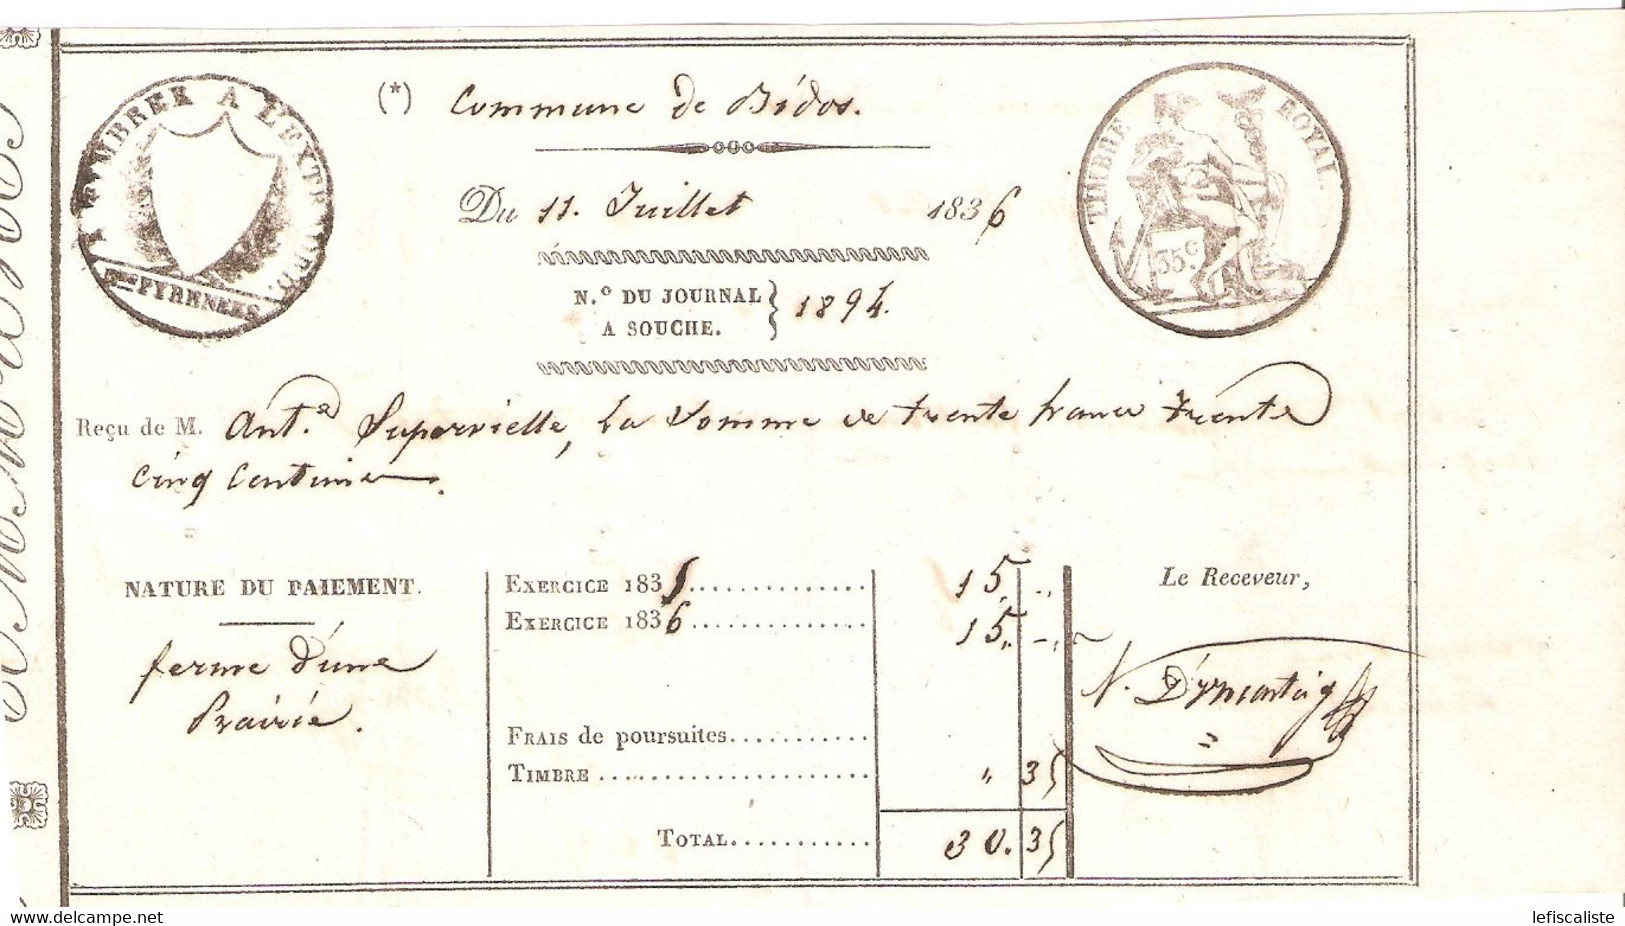 A TIMBRER A L'EXTRAORD.
Bses PYRENEES
(*) Commune de Bidos.
Du 11. Juillet 1836
TIMBRE ROYAL
35 c.
N.° DU JOURNAL
A SOUCHE. } 1894.
Reçu de M. Ant.e Supervielle, la Somme de trente francs trente
cinq Centimes.
NATURE DU PAIEMENT.
ferme d'une
Prairie.
EXERCICE 1835 .............. 15. ..
EXERCICE 1836 .............. 15. ..
FRAIS de poursuites...........
TIMBRE ..................... " 35
TOTAL........... 30. 35
Le Receveur,
www.delcampe.net
lefiscaliste